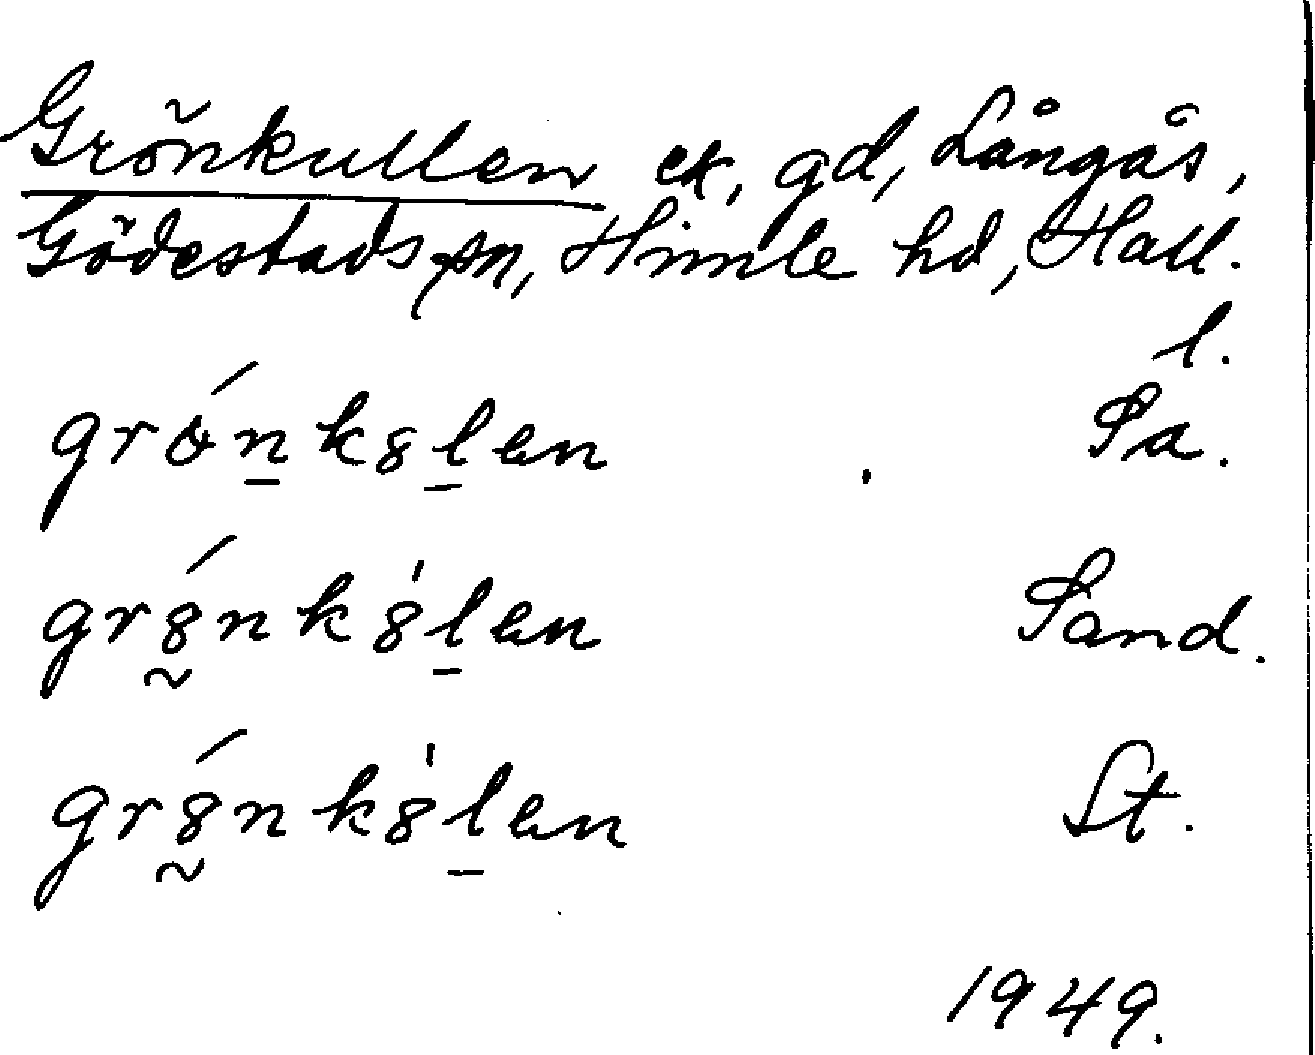 Grönkullen ek, gd, Långås,
Gödestads sn, Himle hd, Hall.
l.
grónk8len Sa.
gr8́nk8̍len Sand.
gr8́nk8̍len St.
1949.